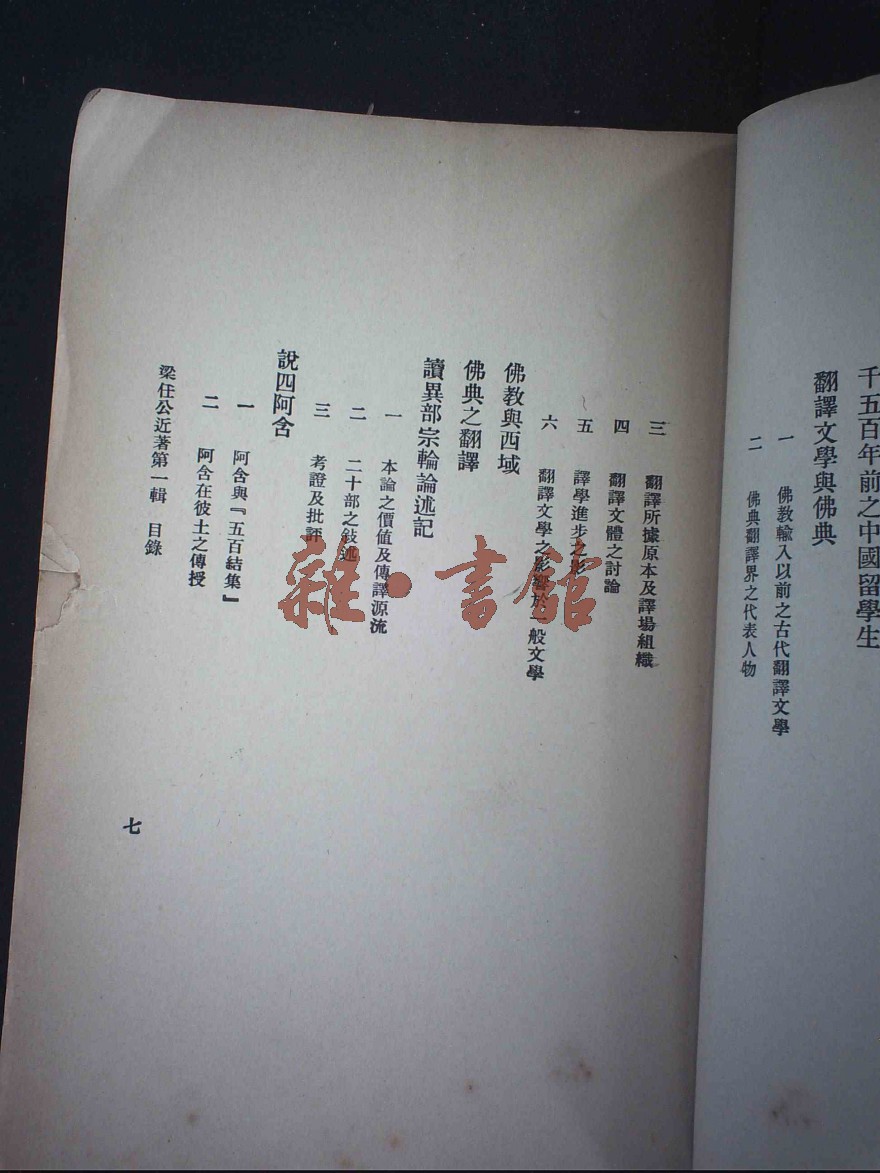 千五百年前之中國留學生
翻譯文學與佛典
一 佛教輸入以前之古代翻譯文學
二 佛典翻譯界之代表人物
三 翻譯所據原本及譯場組織
四 翻譯文體之討論
五 譯學進步之影
六 翻譯文學之影響於一般文學
佛教與西域
佛典之翻譯
讀異部宗輪論述記
一 本論之價値及傳譯源流
二 二十部之敍述
三 考證及批評
說四阿含
一 阿含與『五百結集』
二 阿含在彼土之傳授
梁任公近著第一輯 目錄
七
雜·書館